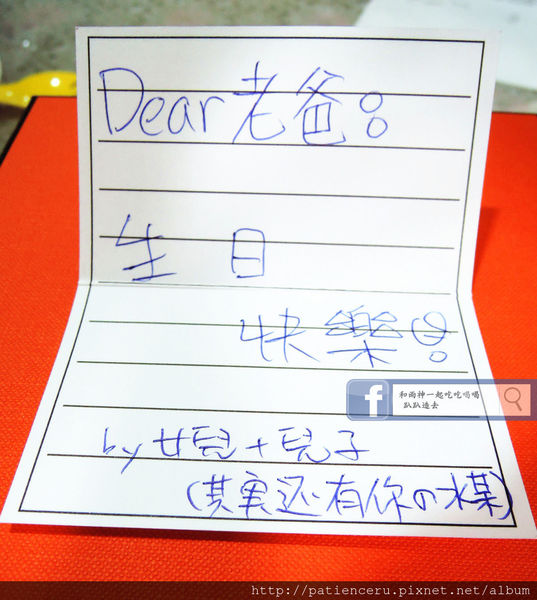 Dear 老爸：
生 日
快樂！
by 女兒＋兒子
(其實还有你の水某)
和雨神一起吃吃喝喝
趴趴造去
http://patienceru.pixnet.net/album